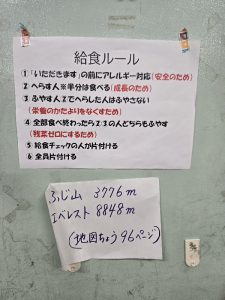 給食ルール
① 「いただきます」の前にアレルギー対応(安全のため)
② へらす人※半分は食べる(成長のため)
③ ふやす人②でへらした人はふやさない
(栄養のかたよりをなくすため)
④ 全部食べ終わったら②③の人どちらもふやす
(残菜ゼロにするため)
⑤ 給食チェックの人が片付ける
⑥ 全員片付ける
ふじ山 3776m
エベレスト 8848m
(地図ちょう96ページ)